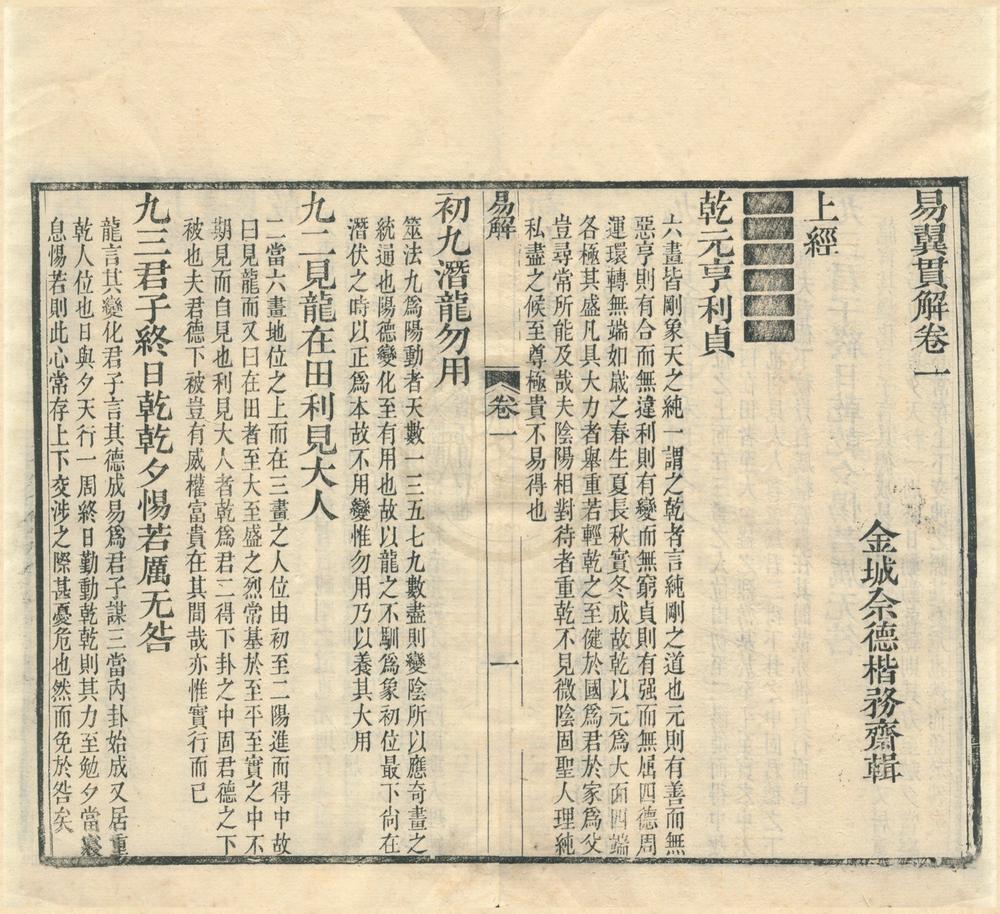 易翼貫解卷一
金城佘德楷務齋輯
上經
乾元亨利貞
六畫皆剛象天之純一謂之乾者言純剛之道也元則有善而無
惡亨則有合而無違利則有變而無窮貞則有强而無屈四德周
運環轉無端如歲之春生夏長秋實冬成故乾以元爲大面四端
各極其盛凡具大力者舉重若輕乾之至健於國爲君於家爲父
豈尋常所能及哉夫陰陽相對待者重乾不見微陰固聖人理純
私盡之候至尊極貴不易得也
易解
卷一
一
初九潛龍勿用
筮法九爲陽動者天數一三五七九數盡則變陰所以應奇畫之
統通也陽德變化至有用也故以龍之不馴爲象初位最下尙在
潛伏之時以正爲本故不用變惟勿用乃以養其大用
九二見龍在田利見大人
二當六畫地位之上而在三畫之人位由初至二陽進而得中故
曰見龍而又曰在田者至大至盛之烈常基於至平至實之中不
期見而自見也利見大人者乾爲君二得下卦之中固君德之下
被也夫君德下被豈有威權富貴在其間哉亦惟實行而已
九三君子終日乾乾夕惕若厲无咎
龍言其變化君子言其德成易爲君子謀三當內卦始成又居重
乾人位也日與夕天行一周終日勤動乾乾則其力至勉夕當寢
息惕若則此心常存上下交涉之際甚憂危也然而免於咎矣